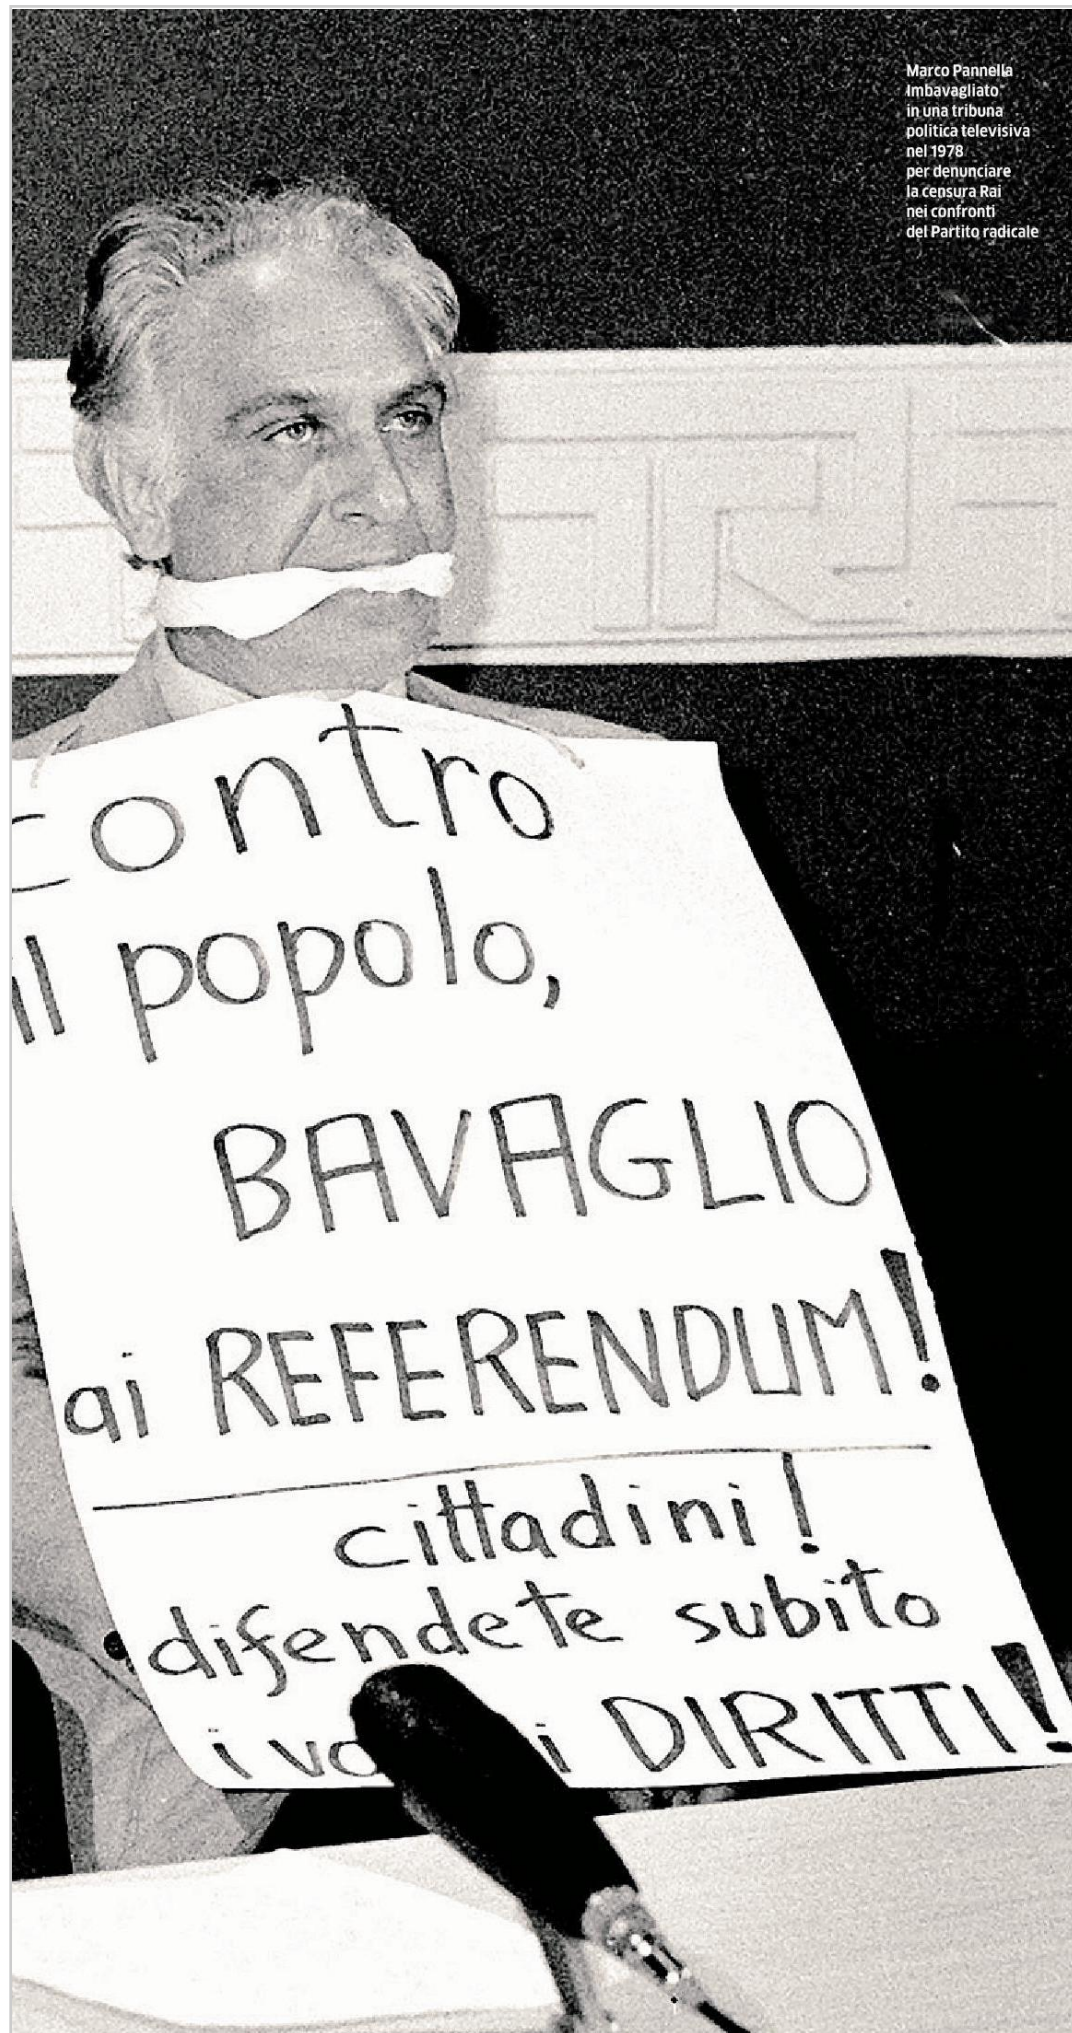 Marco Pannella
Imbavagliato
in una tribuna
politica televisiva
nel 1978
per denunciare
la censura Rai
nei confronti
del Partito radicale
contro
il popolo,
BAVAGLIO
ai REFERENDUM!
cittadini!
difendete subito
i DIRITTI!